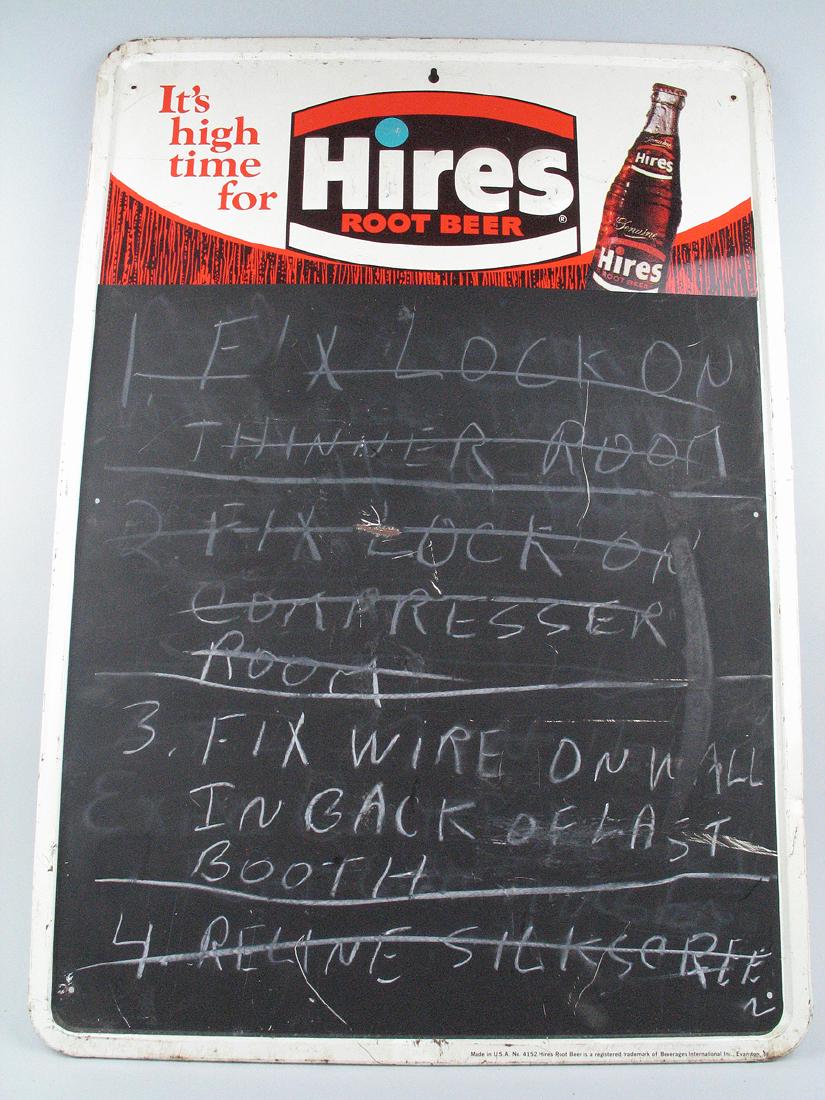 It's
high
time
for
Hires
®
ROOT BEER
Genuine
Hires
Genuine
Hires
ROOT BEER
1. FIX LOCK ON
THINNER ROOM
2 FIX LOCK ON
COMPRESSER
ROOM
3. FIX WIRE ON WALL
IN BACK OF LAST
BOOTH
4. RELINE SILKSCREE
N
Made in U.S.A. No. 4152 Hires Root Beer is a registered trademark of Beverages International Inc., Evanston,